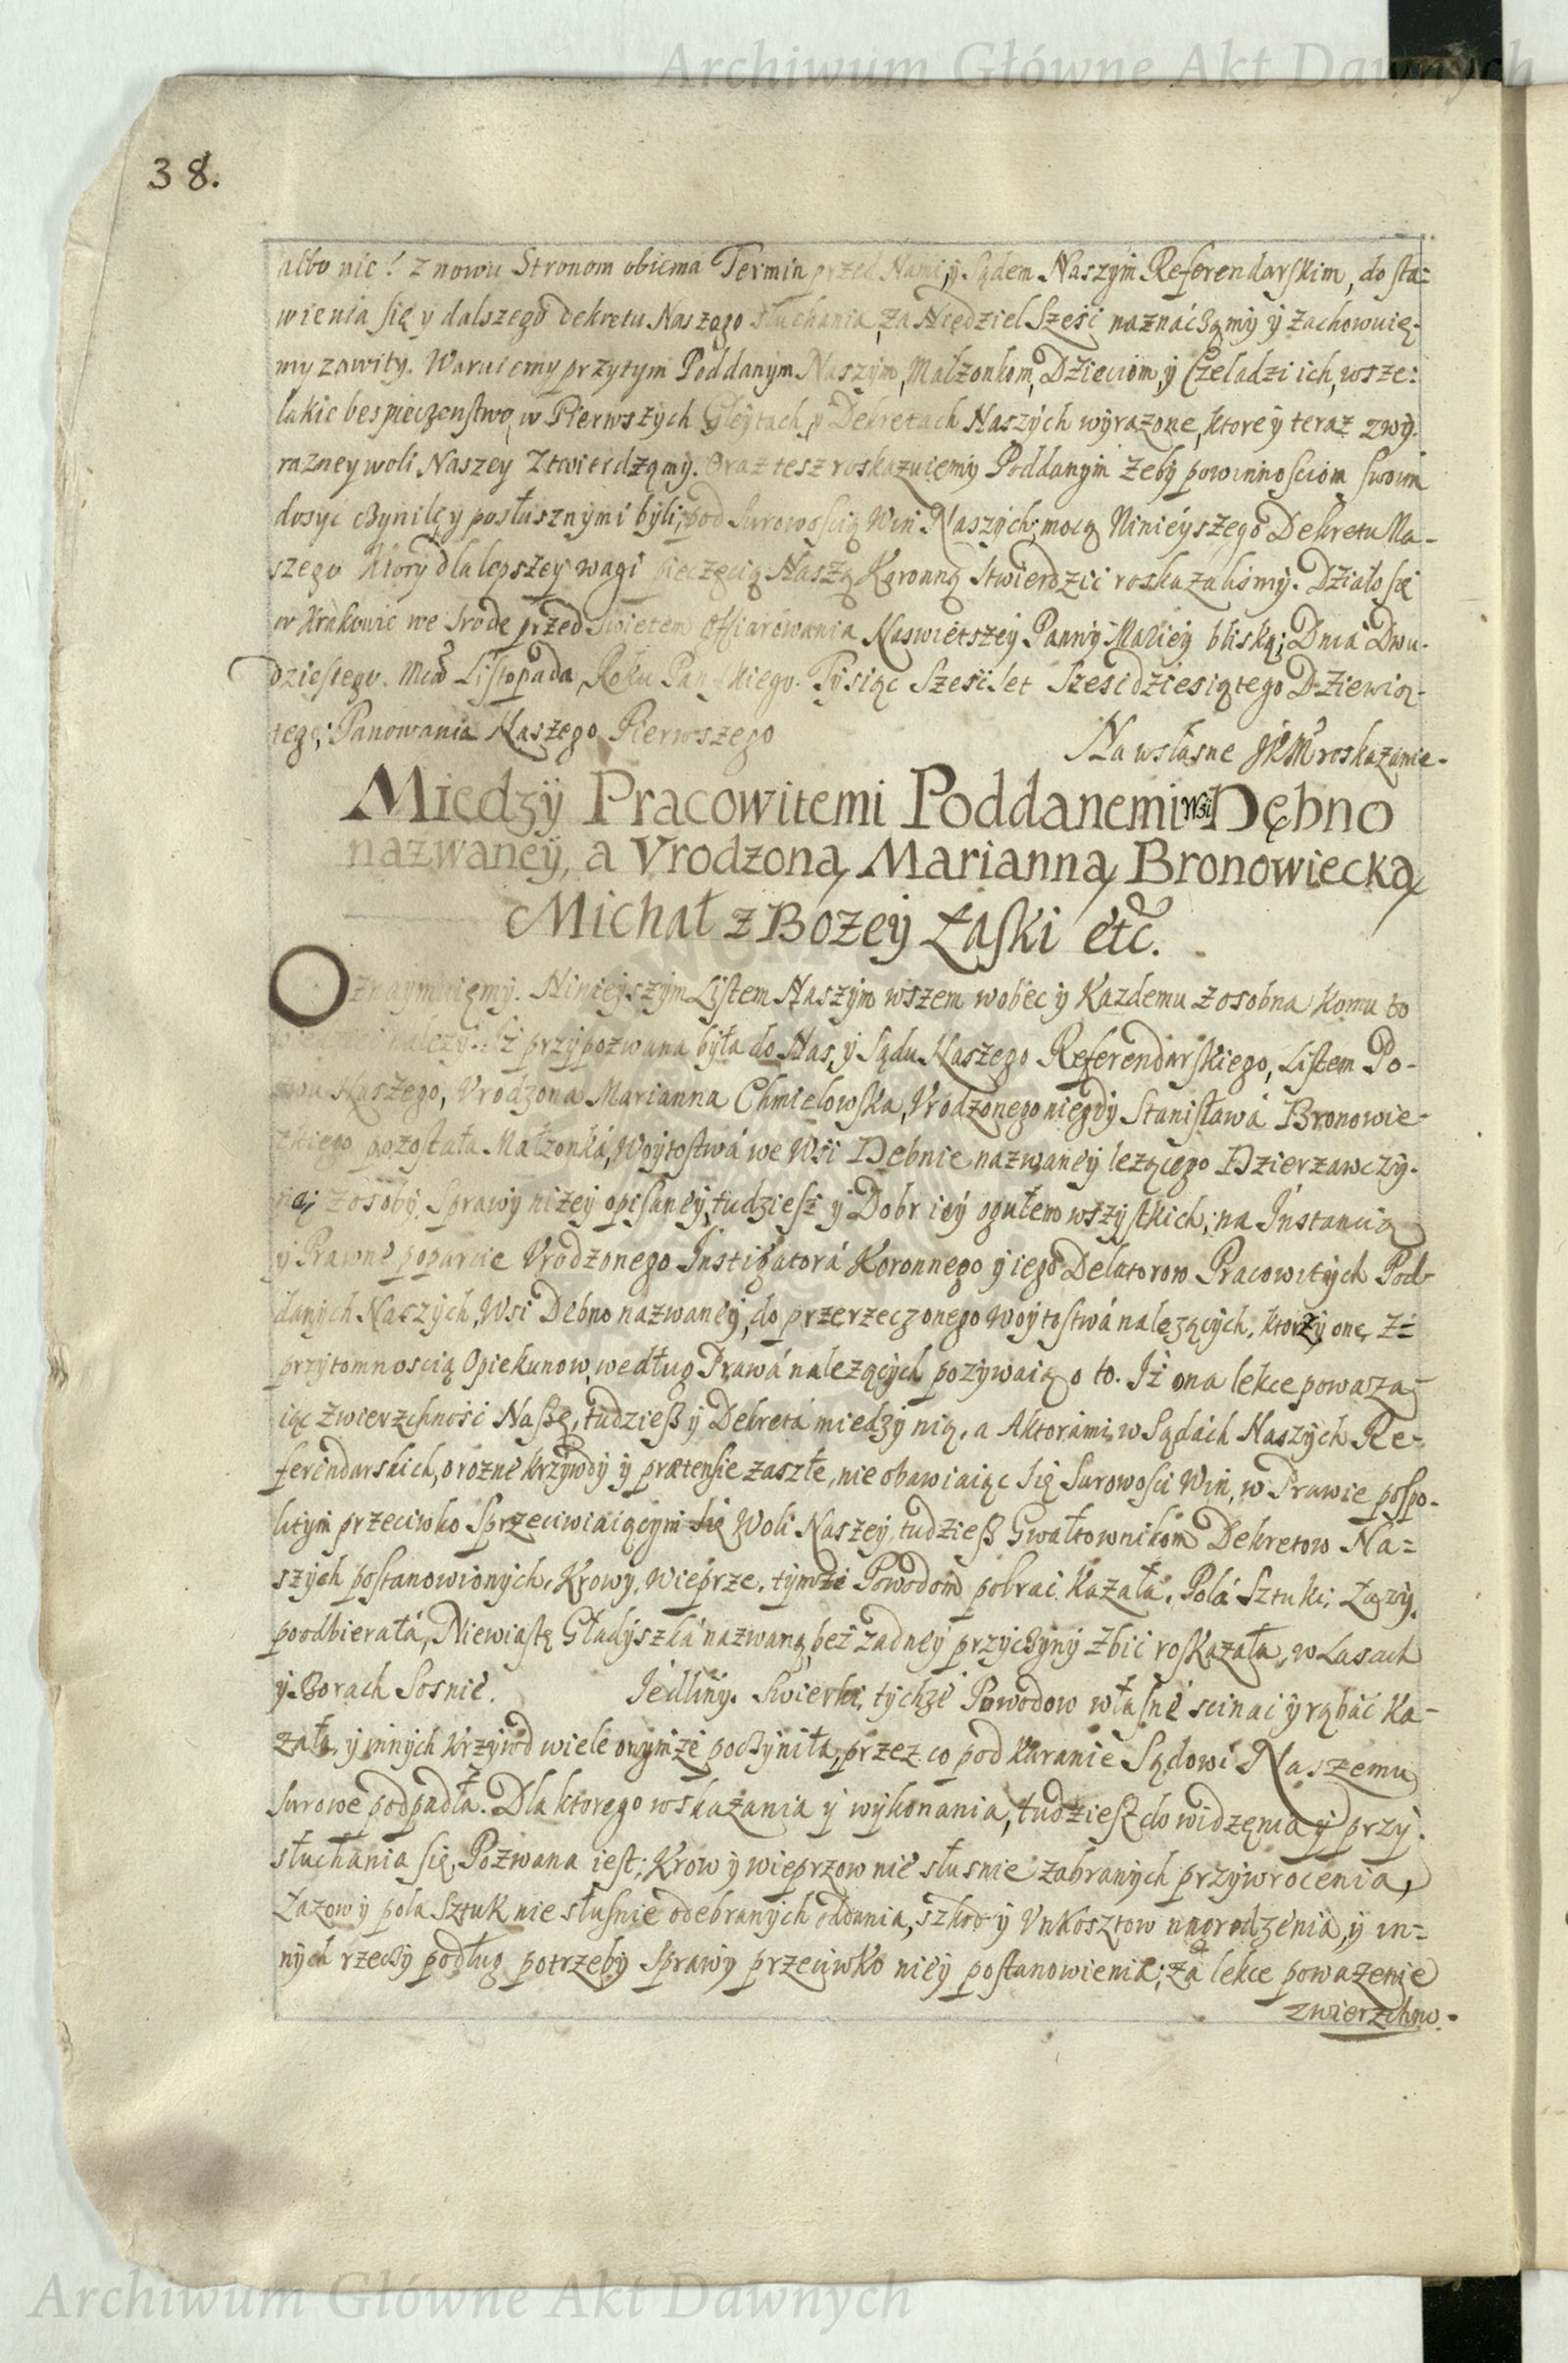 Archiwum Główne Akt Dawnych
38.
albo nie! z nowu Stronom obiema Termin przed Nami, y Sądem Naszym Referendarskim, do sta=
wienia się y dalszego dekretu Naszego słuchania, za Niedziel Sześć naznaczamy y zachowuię-
my zawity. Waruiemy przytym Poddanym Naszym, Małzonkom, Dzieciom, y Czeladzi ich, wsze:
lakie bespieczenstwo, w Pierwszych Gleytach, y Dekretach Naszych wyrazone, ktore y teraz z wy-
razney woli Naszey Ztwierdzamy. Oraz tesz roskazuiemy Poddanym zeby powinnosciom swoim
dosyc czynili, y posłusznymi byli, pod surowoscią Win Naszych; mocą Ninieyszego Dekretu Na-
szego Ktory dla lepszey wagi pieczęcią Naszą Koronną stwierdzic roskazalismy. Działo się
w Krakowie we Srode przed Swietem Offiarowania Naswietszey Panny Mariey bliską; Dnia Dwu-
dziestego. Mca Listopada, Roku Panskiego. Tysiąc Szescset Szescdziesiątego Dziewią-
tego; Panowania Naszego Pierwszego
Na własne JKM roskazanie-
Miedzy Pracowitemi Poddanemi Wsi Dębno
nazwaney, a Vrodzoną Marianną Bronowiecką
Michał z Bozey Łaski etc.
Oznaymuięmy. Ninieyszym Listem Naszym wszem wobec y Kazdemu z osobna komu to
wiedziec nalezy. Iz przypozwana była do Nas, y Sądu Naszego Referendarskiego, Listem Po-
zwu Naszego, Vrodzona Marianna Chmielowska, Vrodzonego niegdy Stanisława Bronowie-
ckiego pozostała Małzonka, Woytostwa we Wsi Debnie nazwaney lezącego Dzierzawczy-
ni; z osoby, Sprawy nizey opisaney, tudziesz y Dobr iey ogułem wszystkich; na Instancią
y Prawne poparcie Vrodzonego Instigatora Koronnego y iego Delatorow Pracowitych Pod-
danych Naszych, Wsi Debno nazwaney, do przerzeczonego woytostwa nalezących, ktorzy one z=
przytomnoscią Opiekunow, według Prawa nalezących pozywaią o to. Iz ona lekce powaza-
iąc zwierzchnosc Naszę, tudziesz y Dekreta miedzy nią, a Aktorami, w Sądach Naszych Re-
ferendarskich, o rozne krzywdy y prætensie zaszłe, nie obawiaiąc się Surowosci Win, w Prawie pospo-
litym przeciwko Sprzeciwiaiącym się Woli Naszey, tudziesz Gwałtownikom Dekretow Na=
szych postanowionych, Krowy, Wieprze, tymze Powodom pobrac kazała, Pola Sztuki, Łazy,
poodbierała, Niewiastę Gładyszka nazwaną, bez zadney przyczyny zbic roskazała, w Lasach
y Borach Sosnie. Iedliny. Swierki, tychze Powodow własne scinac y rąbac ka-
zała, y innych krzywd wiele onymze poczyniła, przez co pod karanie Sądowi Naszemu
surowe podpadła. Dla ktorego wskazania y wykonania, tudziesz do widzęnia y przy-
słuchania się, Pozwana iest; Krow y wieprzow nie słusnie zabranych przywrocenia,
Łazow y pola Sztuk nie słusnie odebranych oddania, szkod y Vnkosztow nagrodzenia, y in=
nych rzeczy podług potrzeby Sprawy przeciwko niey postanowienia; za lekce powazenie
zwierzchno-
Archiwum Główne Akt Dawnych